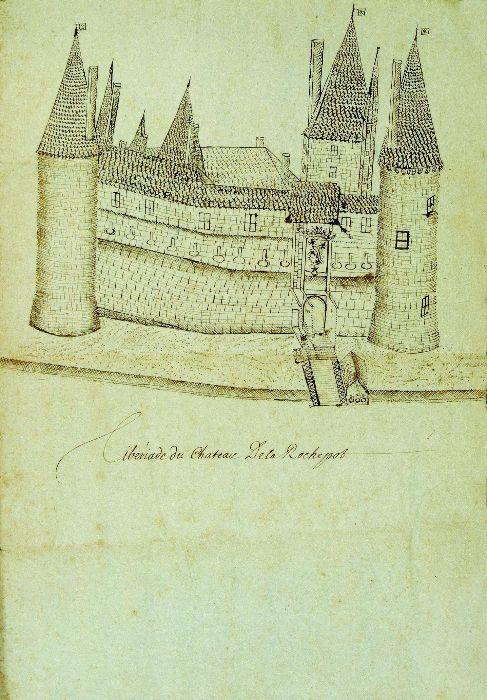 Tiberiade du Chateau De la Rochepot